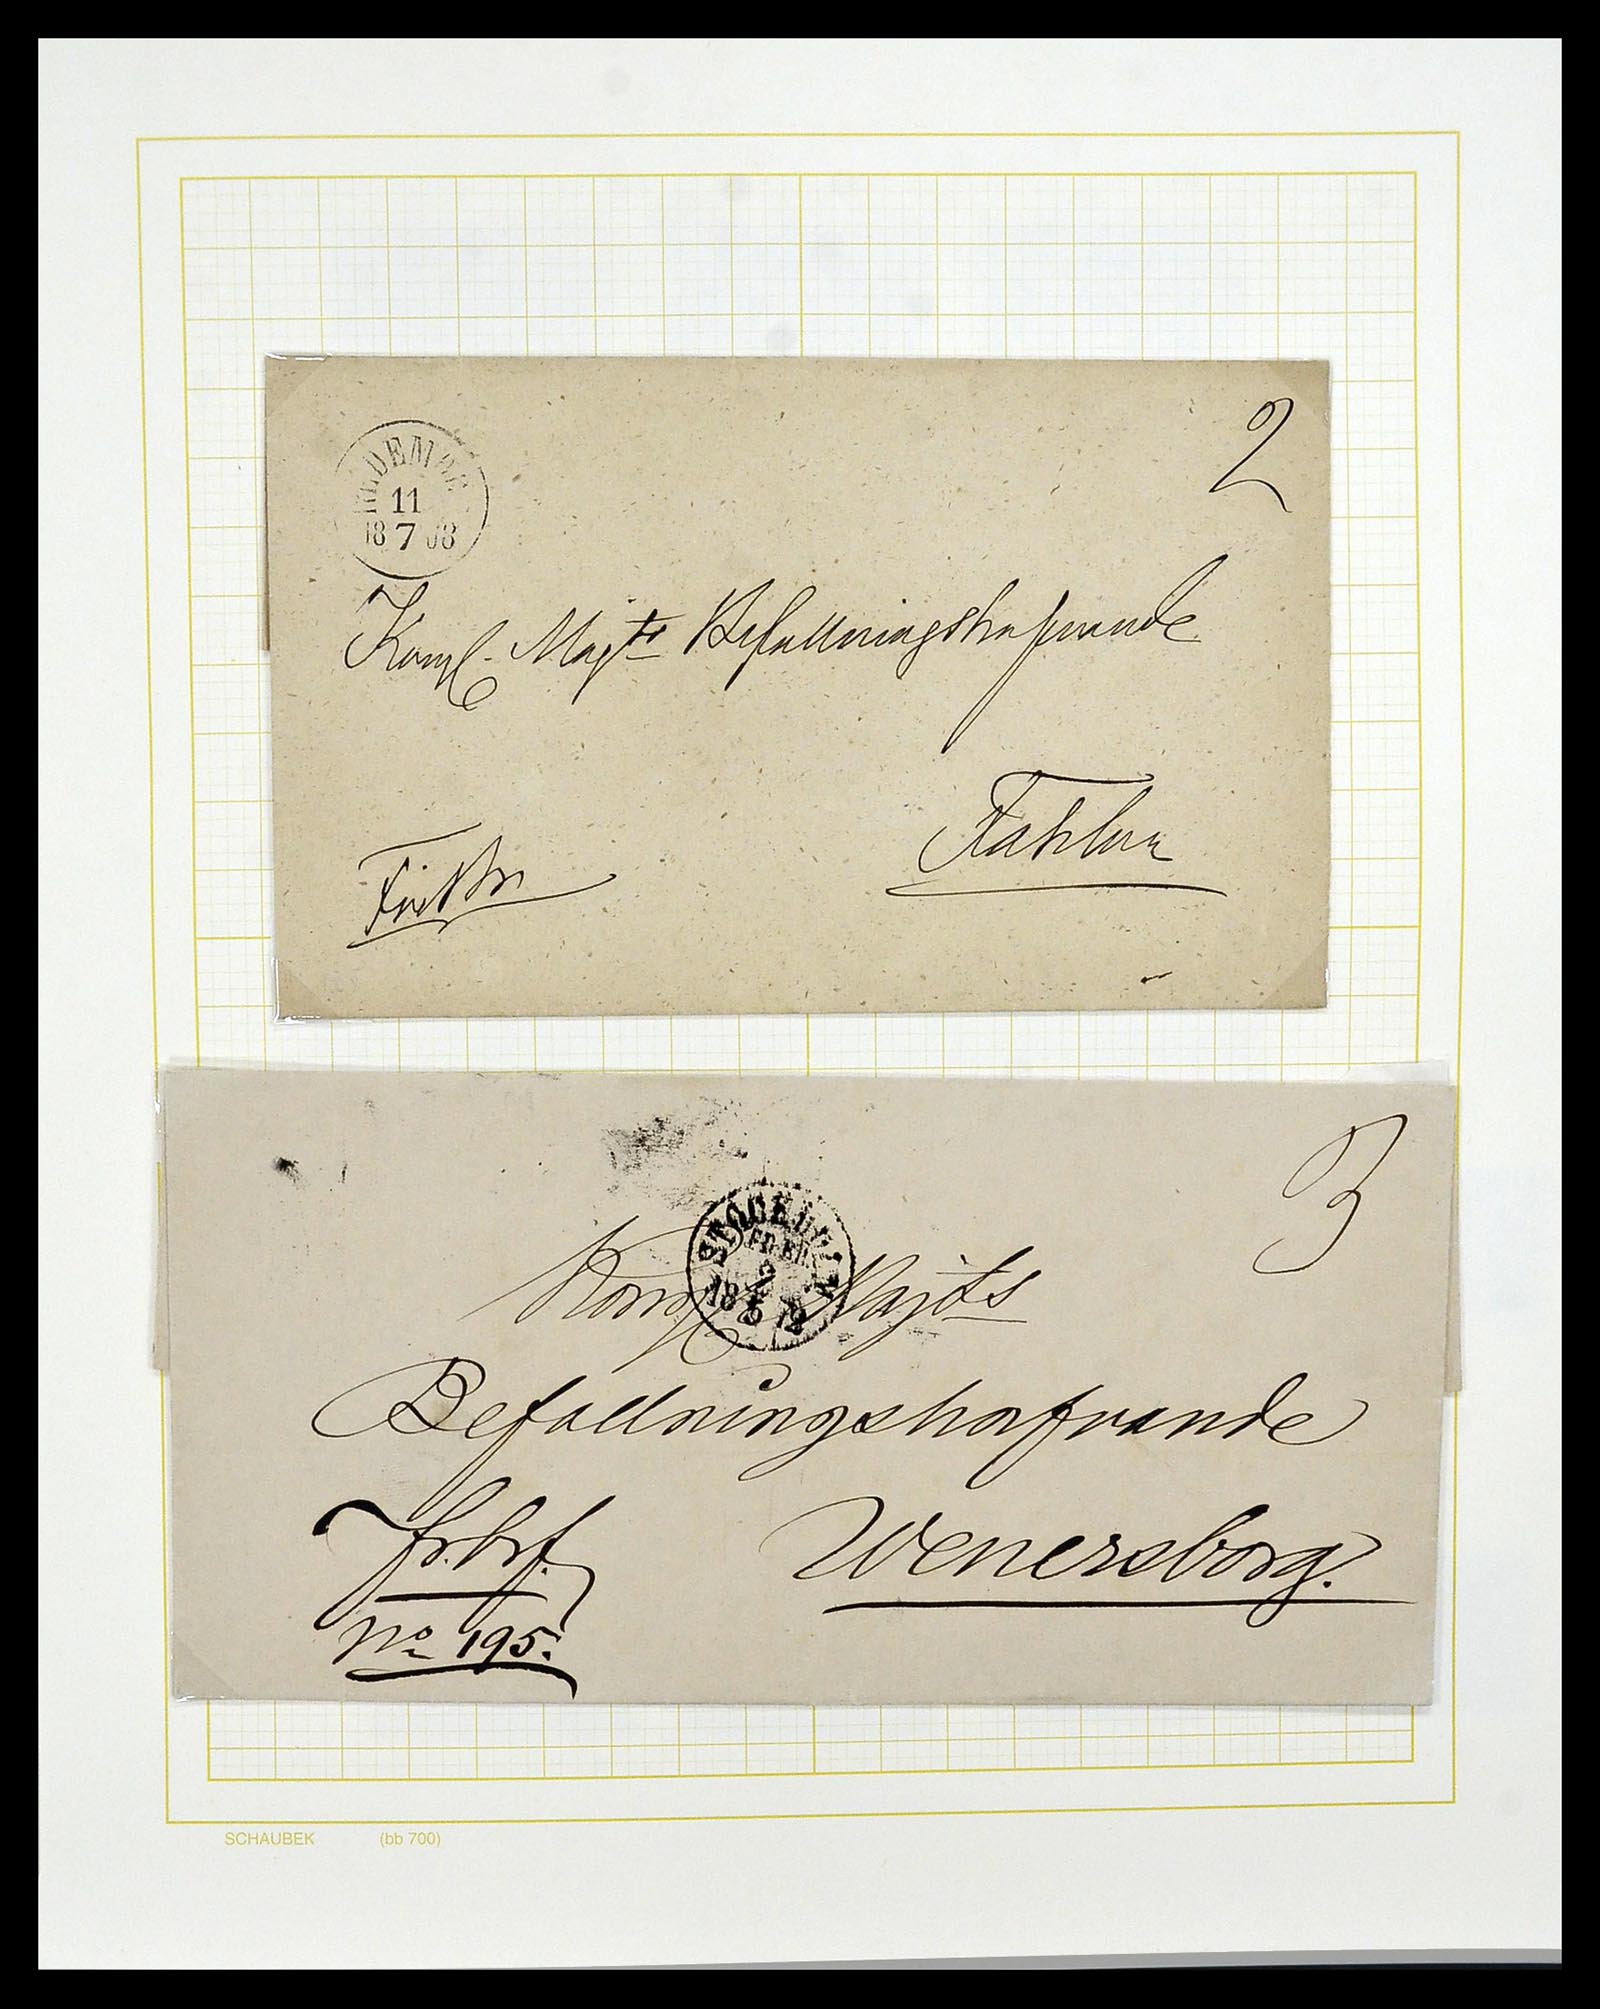 2
11
18 7 68
Kongl. Majts Befallningshafvande
Fahlun
3
STOCKHOLM
18 5 72
Kongl Majts
Befallningshafvande
Fr. brf.
Wenersborg.
No 195.
SCHAUBEK (bb 700)